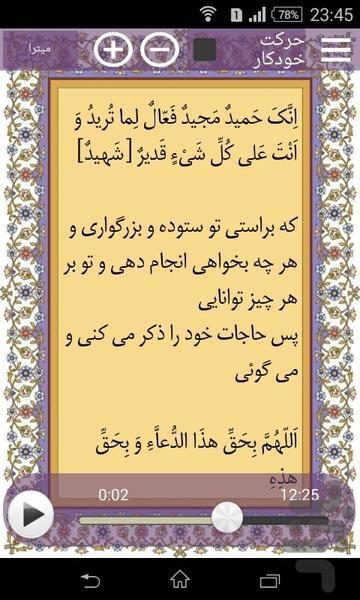 78% 23:45
حرکت خودکار
میترا
اِنَّکَ حَمیدٌ مَجیدٌ فَعّالٌ لِما تُریدُ وَ
اَنْتَ عَلی کُلِّ شَیْءٍ قَدیرٌ [شَهیدٌ]
که براستی تو ستوده و بزرگواری و
هر چه بخواهی انجام دهی و تو بر
هر چیز توانایی
پس حاجات خود را ذکر می کنی و
می گوئی
اَللّهُمَّ بِحَقِّ هذَا الدُّعاَّءِ وَ بِحَقِّ
هذِهِ
0:02 12:25